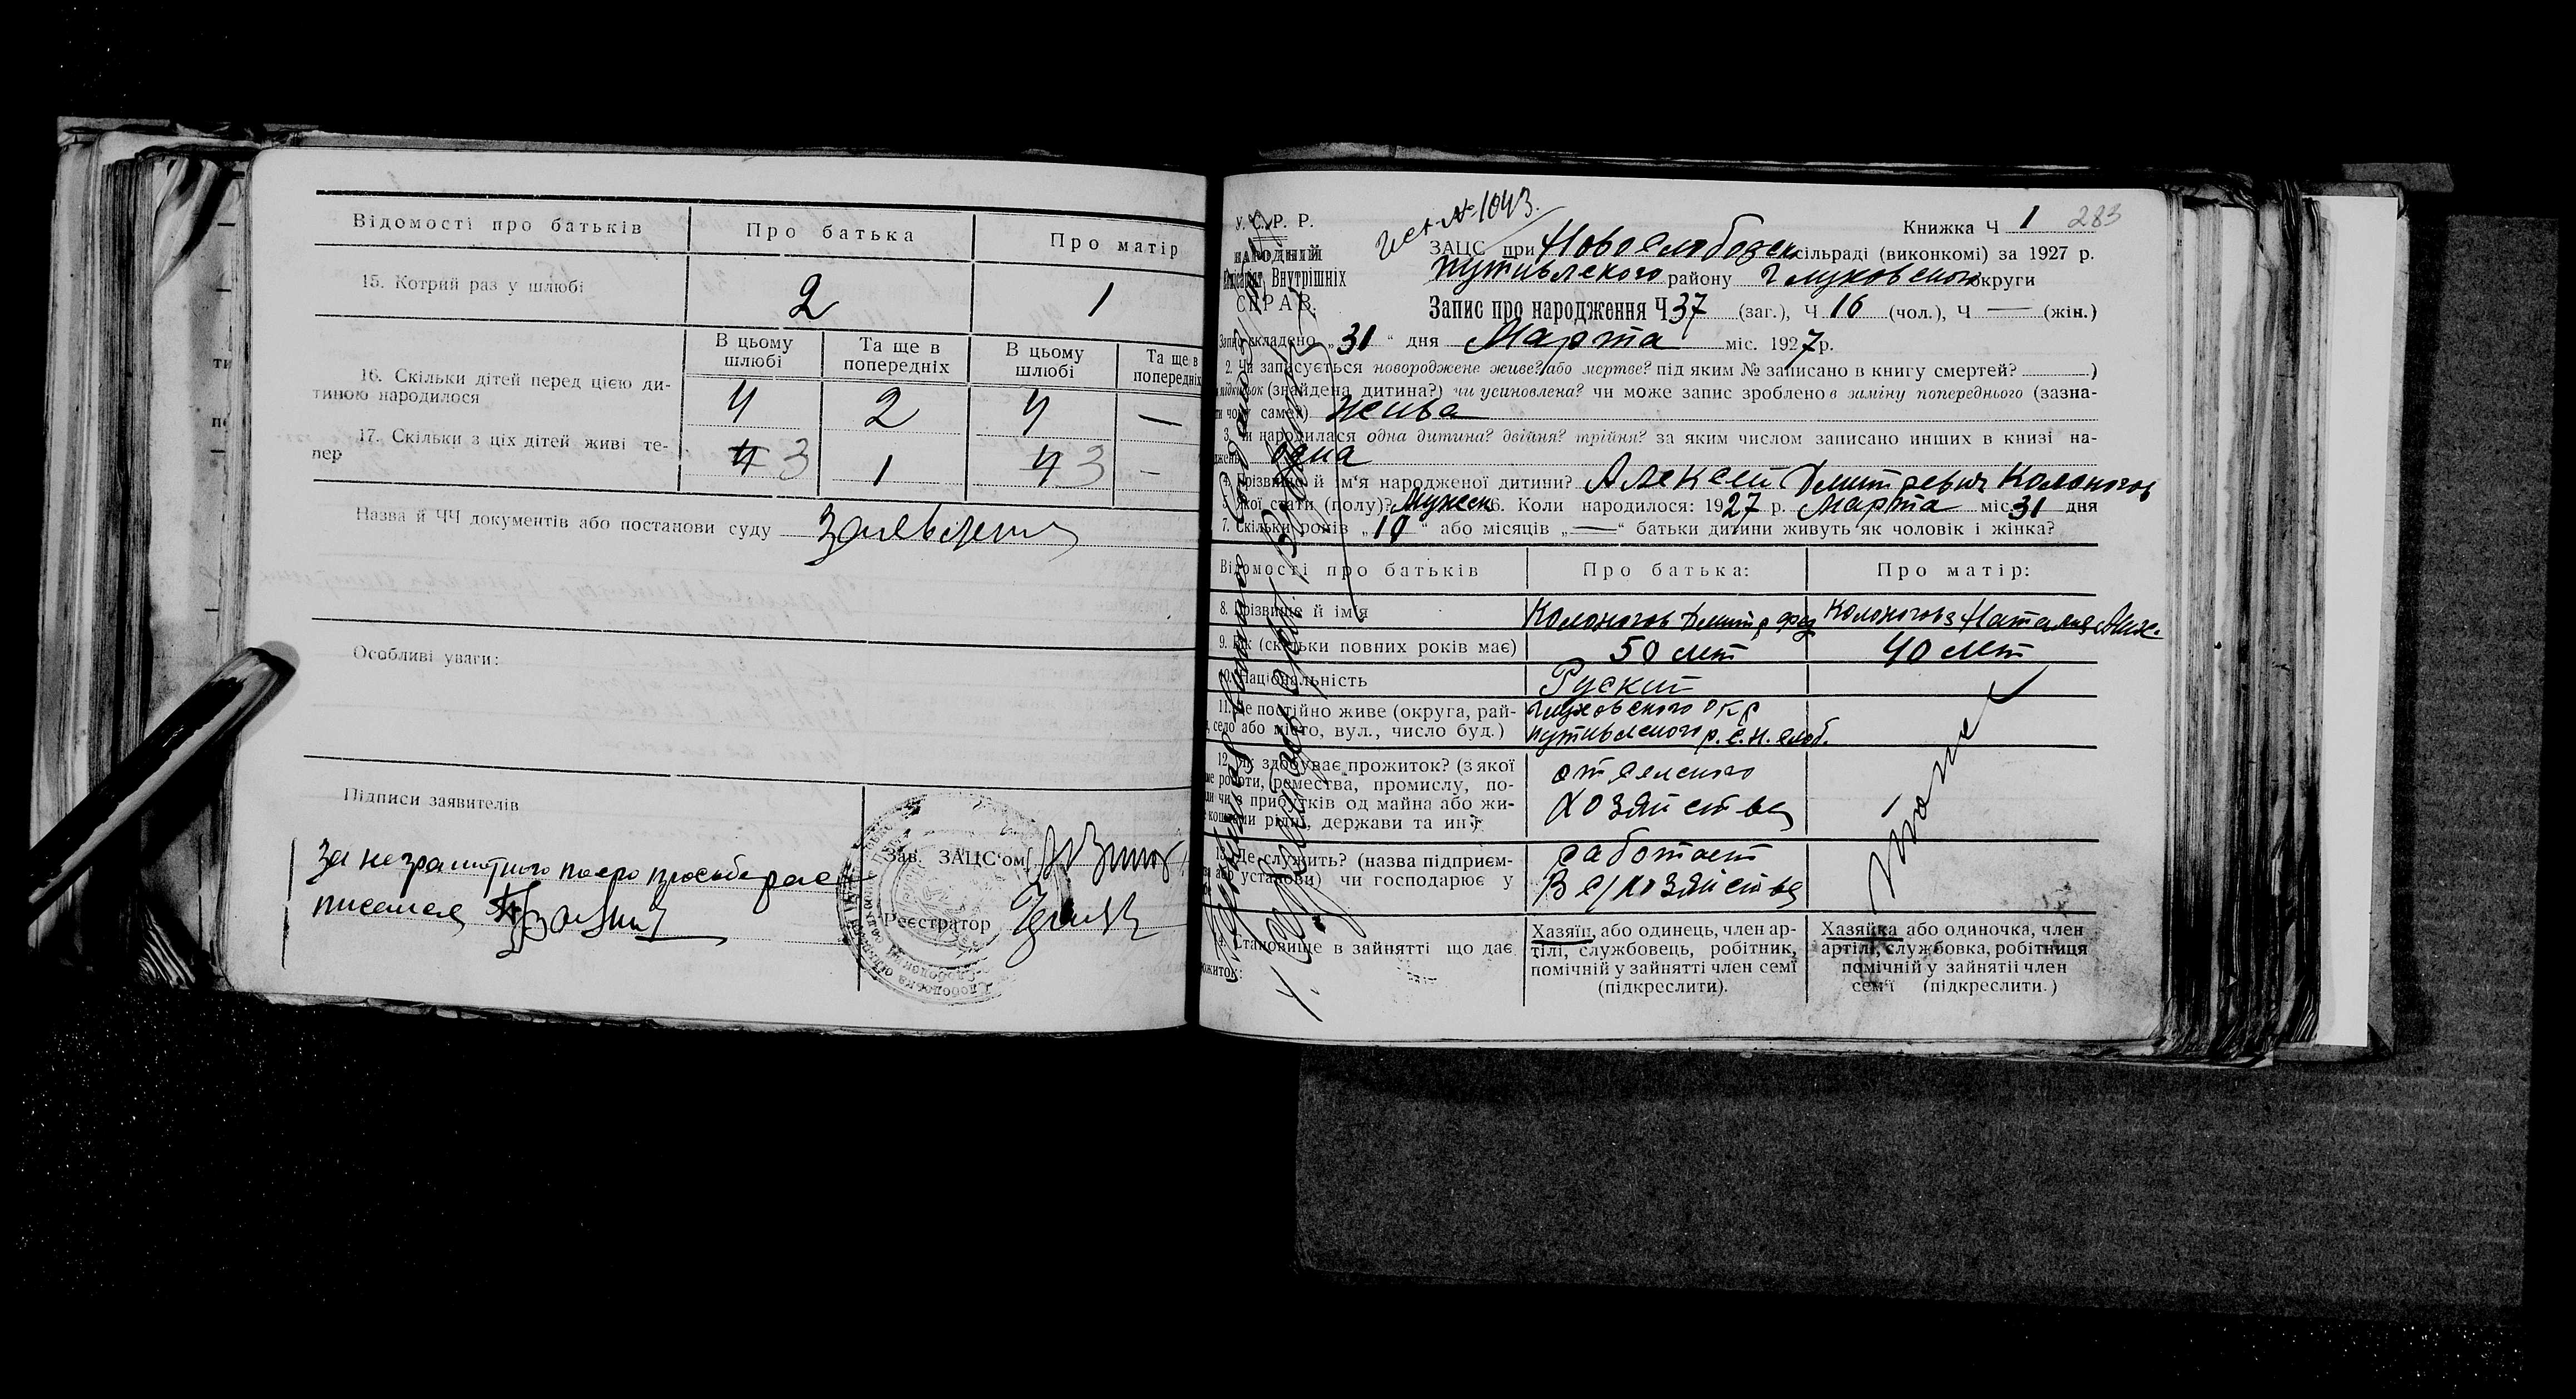 Відомості про батьків
Про батька
Про матір
15. Котрий раз у шлюбі
2
1
В цьому шлюбі
Та ще в попередніх
В цьому шлюбі
Та ще в попередніх
16. Скільки дітей перед цією ди-
тиною народилося
4
2
4
—
17. Скільки з ціх дітей живі те-
пер
4 3
1
4 3
—
Назва й ЧЧ документів або постанови суду
Особливі уваги:
Підписи заявителів
За неграмотного по его прозьбе рас
писался
Зав. ЗАЦС'ом
Реєстратор
У. С. Р. Р.
НАРОДНІЙ
Внутрішніх
СПРАВ.
№ 1043.
Книжка Ч 1 283
ЗАЦС при Новослободск сільраді (виконкомі) за 1927 р.
Путивлского району Глуховской округи
Запис про народження Ч 37 (заг.), Ч 16 (чол.), Ч — (жін.)
складено „31“ дня Марта міс. 1927 р.
2. Чи записується новороджене живе? або мертве? під яким № записано в книгу смертей? )
(знайдена дитина?) чи усиновлена? чи може запис зроблено в заміну попереднього (зазна-
чому саме?) жива
3. Чи народилася одна дитина? двійня? трійня? за яким числом записано инших в книзі на-
одна
4. Прізвище й ім'я народженої дитини? Алексей Дмитревич Колоногов
5. Якої стати (полу)? Мужск 6. Коли народилося: 1927 р. Марта міс 31 дня
7. Скільки років „10“ або місяців „—“ батьки дитини живуть як чоловік і жінка?
Відомості про батьків
Про батька:
Про матір:
8. Прізвище й ім'я
Колоногов Дмитр Фед
Колоногова Наталия Мих.
9. Вік (скільки повних років має)
50 лет
40 лет
10. Національність
Руский
11. Де постійно живе (округа, рай-
село або місто, вул., число буд.)
Глуховского окр
Путивлского р. с. Н. Слоб.
12. Як здобуває прожиток? (з якої
роботи, ремества, промислу, по-
чи з прибутків од майна або жи-
коштами рідні, держави та ин.)
от селского
хозяйства
13. Де служить? (назва підприєм-
установи) чи господарює у
работает
в с/хозяйстве
тоже
14. Становище в зайнятті що дає
прожиток:
Хазяїн, або одинець, член ар-
тілі, службовець, робітник,
помічній у зайнятті член семї
(підкреслити).
Хазяйка або одиночка, член
артілі, службовка, робітниця
помічній у зайнятіі член
сем'ї (підкреслити.)